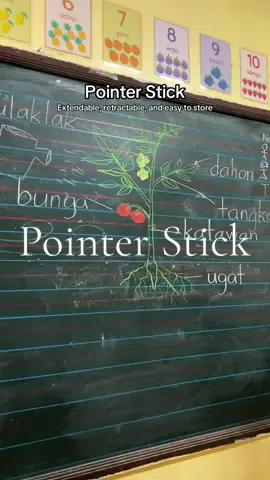 6
7
8
9
10
Pointer Stick
Extendable, retractable, and easy to store
ulaklak
dahan
bunga
tangka
katawan
Pointer Stick
ugat